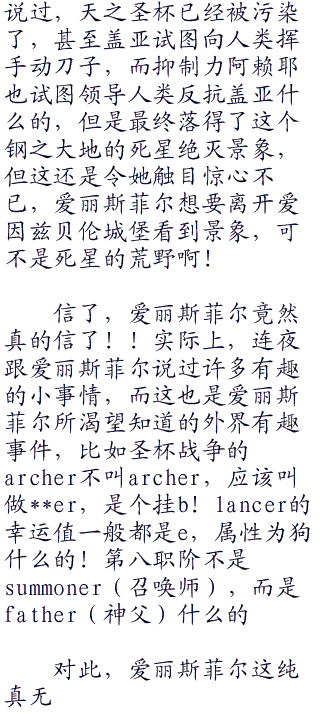 说过，天之圣杯已经被污染
了，甚至盖亚试图向人类挥
手动刀子，而抑制力阿赖耶
也试图领导人类反抗盖亚什
么的，但是最终落得了这个
钢之大地的死星绝灭景象，
但这还是令她触目惊心不
已，爱丽斯菲尔想要离开爱
因兹贝伦城堡看到景象，可
不是死星的荒野啊！
信了，爱丽斯菲尔竟然
真的信了！！实际上，连夜
跟爱丽斯菲尔说过许多有趣
的小事情，而这也是爱丽斯
菲尔所渴望知道的外界有趣
事件，比如圣杯战争的
archer不叫archer，应该叫
做**er，是个挂b！lancer的
幸运值一般都是e，属性为狗
什么的！第八职阶不是
summoner（召唤师），而是
father（神父）什么的
对此，爱丽斯菲尔这纯
真无